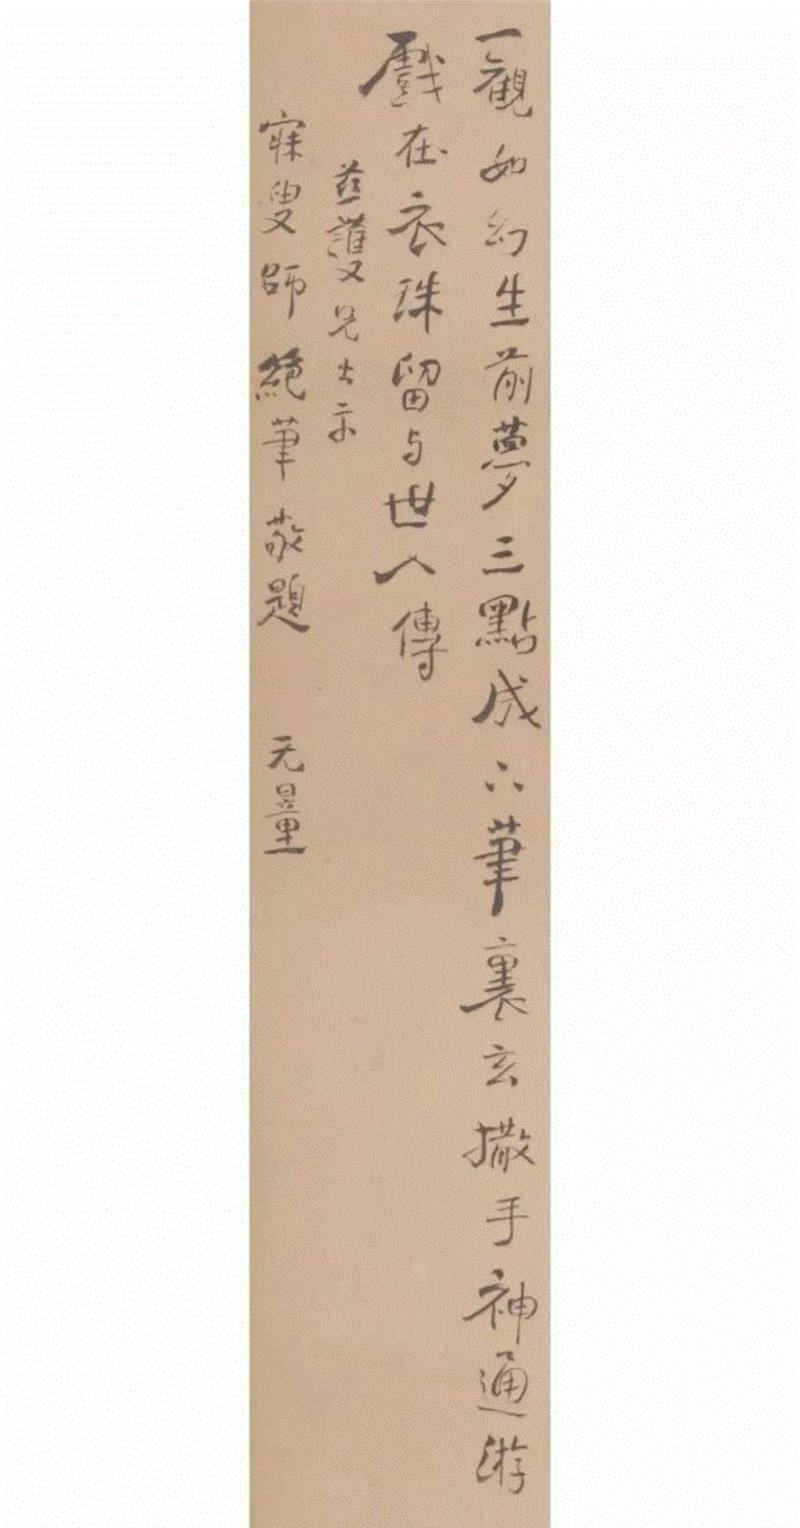 一觀如幻生前夢三點成六筆裏玄撒手神通游
戲在衣珠留与世人傳
慈護兄出示
寐叟師絕筆敬題 无量